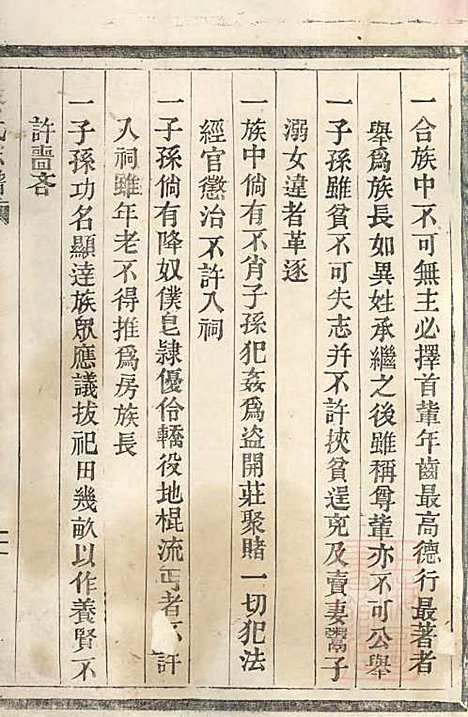 一合族中不可無主必擇首輩年齒最高德行最著者
舉爲族長如異姓承繼之後雖稱尊輩亦不可公舉
一子孫雖貧不可失志并不許挾貧逞兇及賣妻鬻子
溺女違者革逐
一族中倘有不肖子孫犯姦爲盜開莊聚賭一切犯法
經官懲治不許入祠
一子孫倘有降奴僕皂隸優伶轎役地棍流丐者不許
入祠雖年老不得推爲房族長
一子孫功名顯達族眾應議拔祀田幾畝以作養賢不
許嗇吝